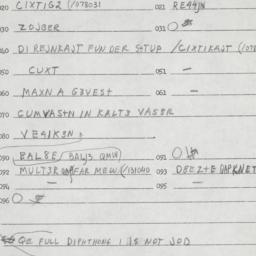 020 CIXTIG2 (/078031 021 RE44JN
030 ZOJBER 031
040 DI REJNKAJT FUN DER GTUP /CIXTIKAJT (/078
050 CUXT 051 —
060 MAXN A GEVEST 061 —
070 CUMVASTN IN KALTS VASER
080 VE4IKSN
090 BAL8E/ BALJ3 QMW 091
092 MULTSR FAR MEW. (/131040 093 DEEZTE
094 — 095 —
096
QE FULL DIPHTHONG I IS NOT JOD